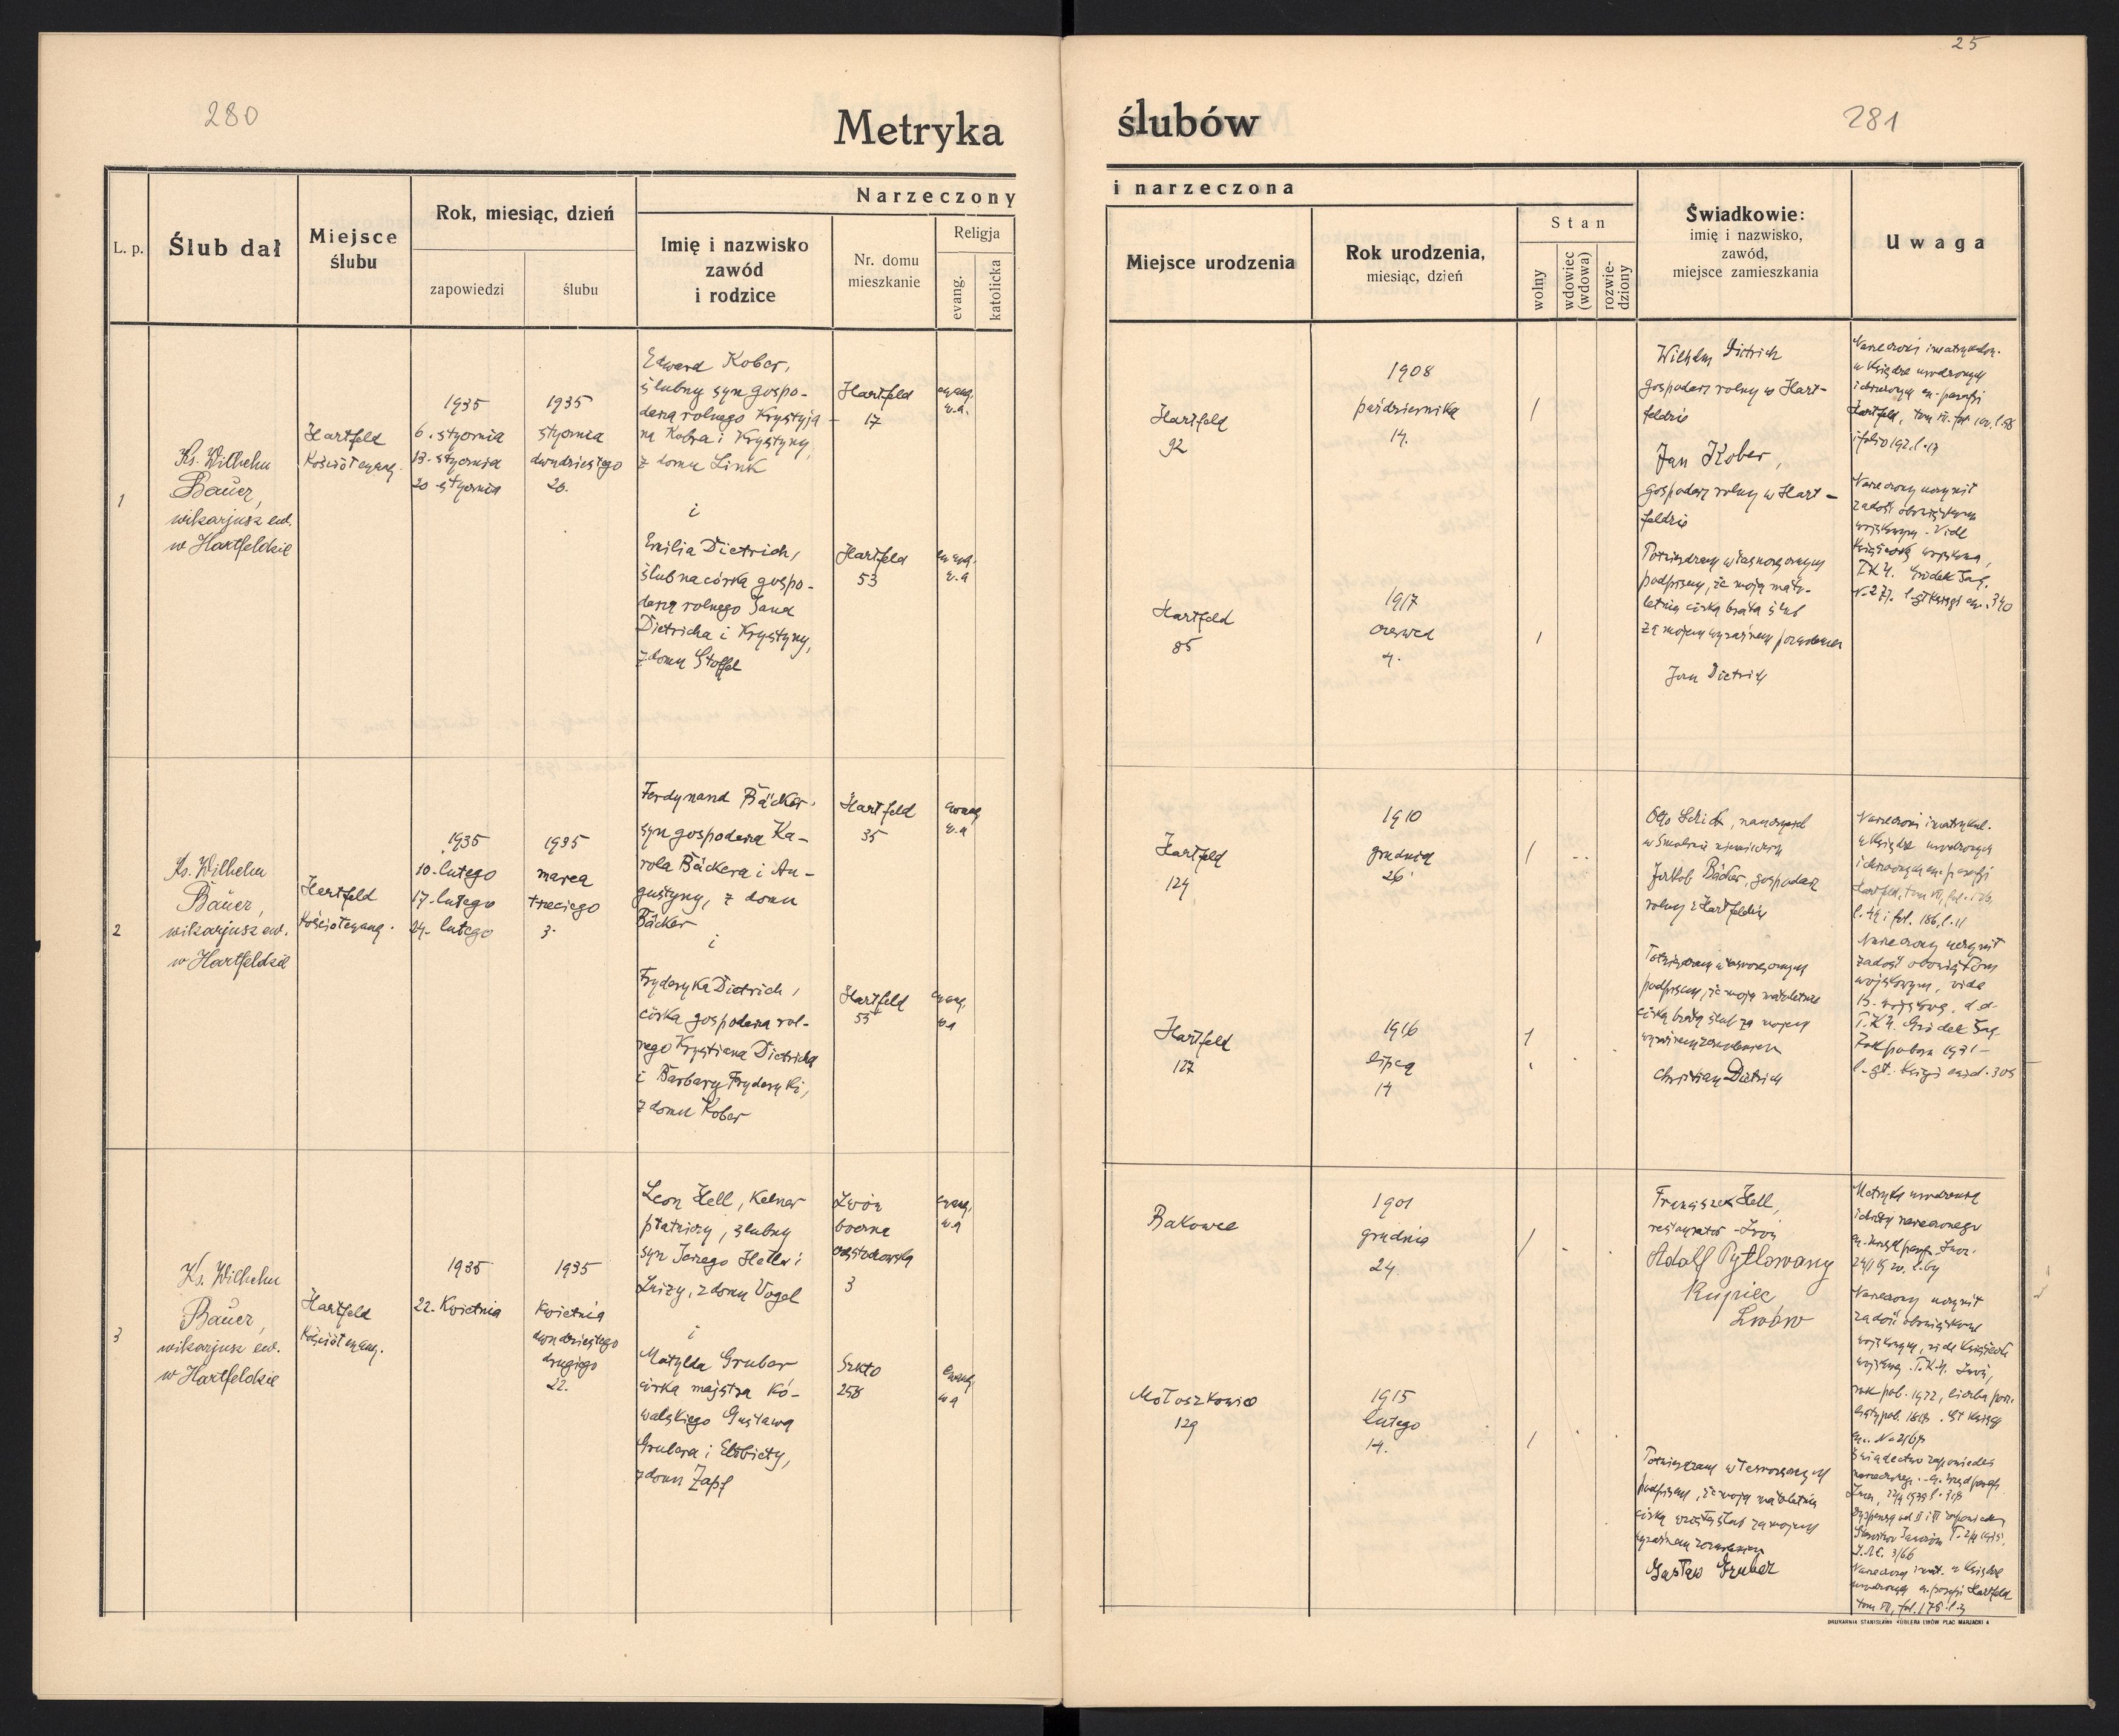 25
280
281
Metryka ślubów
Narzeczony i narzeczona
L. p.
Ślub dał
Miejsce
ślubu
Rok, miesiąc, dzień
zapowiedzi
ślubu
Imię i nazwisko
zawód
i rodzice
Nr. domu
mieszkanie
Religja
evang.
katolicka
Miejsce urodzenia
Rok urodzenia,
miesiąc, dzień
Stan
wolny
wdowiec
(wdowa)
rozwie-
dziony
Świadkowie:
imię i nazwisko,
zawód,
miejsce zamieszkania
Uwaga
1
Ks. Wilhelm
Bauer,
wikarjusz ew.
w Hartfeldzie
Hartfeld
Kościół ewang.
1935
6. stycznia
13. stycznia
20. stycznia
1935
stycznia
dwudziestego
20.
Edward Kober,
ślubny syn gospo-
darza rolnego Krystja-
na Kobra i Krystyny,
z domu Link
i
Emilia Dietrich,
ślubna córka gospo-
darza rolnego Jana
Dietricha i Krystyny,
z domu Stoffel
Hartfeld
17
ewang.
w.a.
Hartfeld
53
ewang.
w.a
Hartfeld
92
Hartfeld
85
1908
października
14.
1917
czerwca
4.
1
1
Wilhelm Dietrich
gospodarz rolny w Hart-
feldzie
Jan Kober,
gospodarz rolny w Hart-
feldzie
Potwierdzam własnoręcznym
podpisem, że moja mało-
letnia córka brała ślub
za mojem wyraźnem
Jan Dietrich
Narzeczeni
w Księdze urodzonych
i chrzczonych ew. parafji
Hartfeld, tom
Narzeczony uczynił
zadość obowiązkom
wojskowym. Vide
Książeczka wojskowa,
P.K.U. Gródek Jag.
2
Ks. Wilhelm
Bauer,
wikarjusz ew.
w Hartfeldzie
Hartfeld
Kościół ewang.
1935
10. lutego
17. lutego
24. lutego
1935
marca
trzeciego
3.
Ferdynand Bäcker.
syn gospodarza Ka-
rola Bäckera i Au-
gustyny, z domu
Bäcker
i
Fryderyka Dietrich,
córka gospodarza rol-
nego Krystiana Dietricha
i Barbary Fryderyki,
z domu Kober
Hartfeld
35
ewang
w.a
Hartfeld
55
ewang.
wa
Hartfeld
124
Hartfeld
127
1910
grudnia
26
1916
lipca
14
1
1
Otto Schick,
w Smolnie
Jakob Bäcker, gospodarz
rolny z Hartfeldu
Potwierdzam własnoręcznym
podpisem, że moja małoletnia
córka brała ślub za mojem
wyraźnem zezwoleniem
Christian Dietrich
Narzeczeni
w Księdze urodzonych
i chrzczonych ew. parafji
Hartfeld, tom VII, fol.
fol. 186, l. 11
Narzeczony uczynił
zadość obowiązkom
wojskowym, vide
P.K.U. Gródek Jag.
3
Ks. Wilhelm
Bauer,
wikarjusz ew.
w Hartfeldzie
Hartfeld
Kościół ewang.
1935
22. kwietnia
1935
kwietnia
dwudziestego
drugiego
22.
Leon Hell, kelner
płatniczy, ślubny
syn Jerzego Hella i
Luizy, z domu Vogel
i
Matylda Gruber
córka majstra ko-
walskiego Gustawa
Grubera i Elżbiety,
z domu Zapf
Lwów
boczna
częstochowska
3
ewang.
wa
Szkło
258
ewang.
wa
Bakowce
Mołoszkowice
129
1901
grudnia
24.
1915
lutego
14.
1
1
Franciszek Hell,
restaurator - Lwów
Adolf Pytlowany
Kupiec
Lwów
Potwierdzam własnoręcznym
podpisem, że moja małoletnia
córka wzięła ślub za mojem
wyraźnem zezwoleniem
Gustaw Gruber
Metryka urodzenia
i chrztu narzeczonego
Narzeczony uczynił
zadość obowiązkom
wojskowym, vide Książeczka
wojskowa P.K.U. Lwów,
Świadectwo zapowiedzi
urodzonych ew. parafji Hartfeld
DRUKARNIA STANISŁAWA KÜBLERA LWÓW PLAC MARJACKI 4